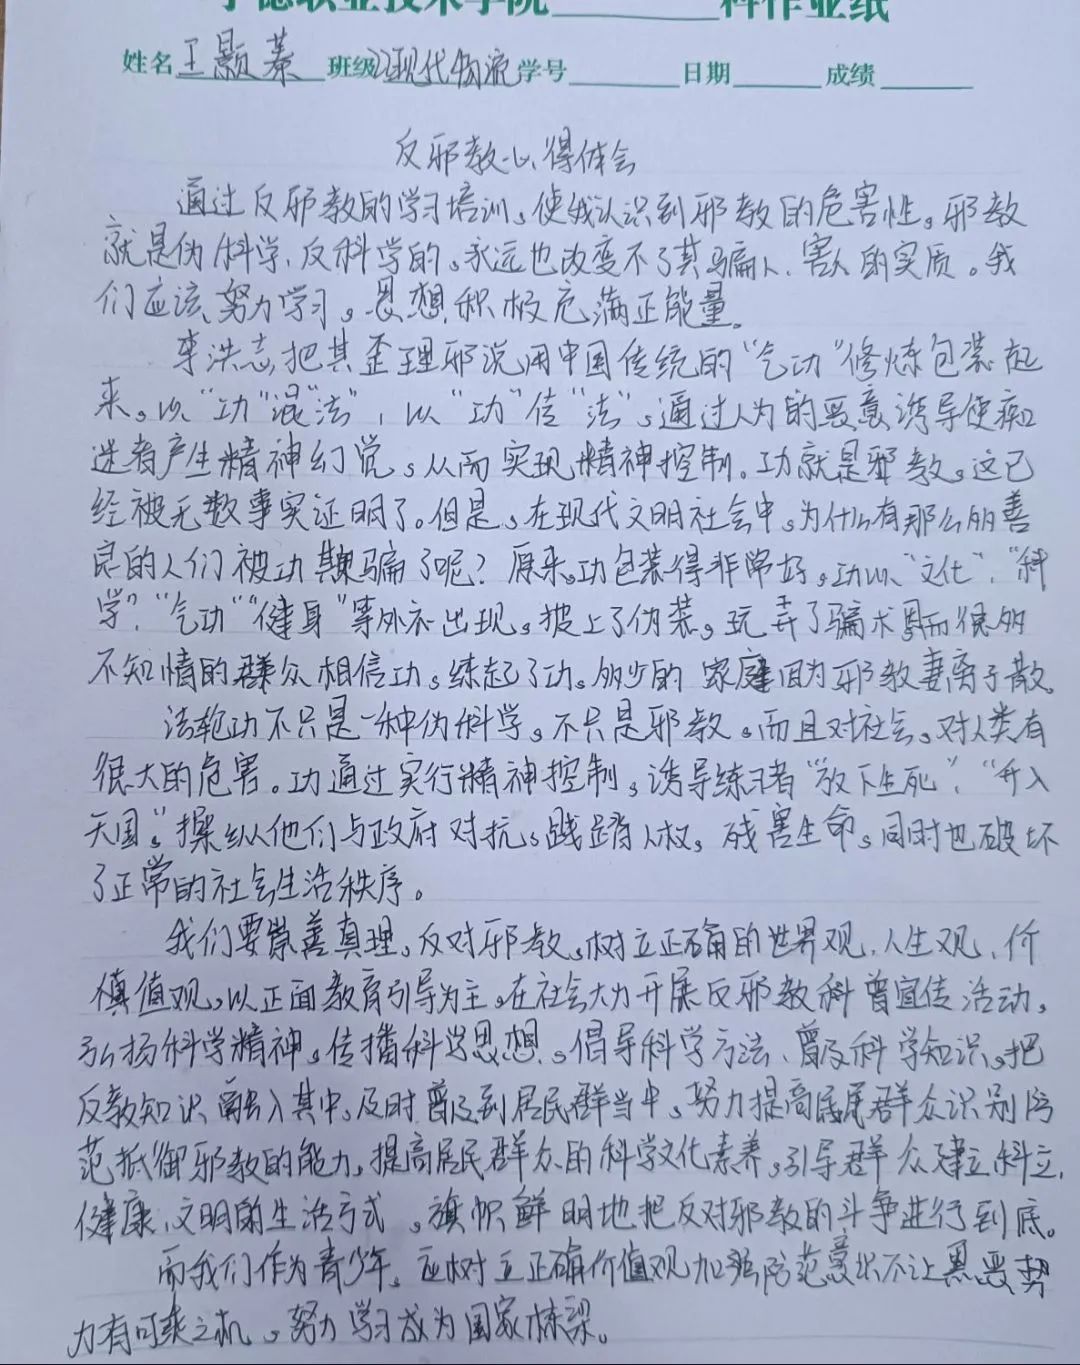 宁德职业技术学院______科作业纸
姓名王颢蓁 班级22现代物流 学号______ 日期______ 成绩______
反邪教心得体会
通过反邪教的学习培训，使我认识到邪教的危害性。邪教
就是伪科学、反科学的，永远也改变不了其骗人、害人的实质。我
们应该努力学习，思想积极充满正能量。
李洪志把其歪理邪说用中国传统的“气功”修炼包装起
来，以“功”混“法”，以“功”传“法”，通过人为的恶意诱导使痴
迷者产生精神幻觉，从而实现精神控制。功就是邪教，这已
经被无数事实证明了。但是，在现代文明社会中，为什么有那么多善
良的人们被功欺骗了呢？原来，功包装得非常好，功以“文化”、“科
学”、“气功”“健身”等外衣出现，披上了伪装，玩弄了骗术，而很多
不知情的群众相信功，练起了功。多少的家庭因为邪教妻离子散。
法轮功不只是一种伪科学，不只是邪教，而且对社会，对人类有
很大的危害。功通过实行精神控制，诱导练习者“放下生死”、“升入
天国”，操纵他们与政府对抗，践踏人权，残害生命，同时也破坏
了正常的社会生活秩序。
我们要崇善真理，反对邪教，树立正确的世界观、人生观、价
值观，以正面教育引导为主，在社会大力开展反邪教科普宣传活动，
弘扬科学精神，传播科学思想，倡导科学方法、普及科学知识，把
反教知识融入其中，及时普及到居民群当中，努力提高居民群众识别防
范抵御邪教的能力，提高居民群众的科学文化素养，引导群众建立科立、
健康、文明的生活方式，旗帜鲜明地把反对邪教的斗争进行到底。
而我们作为青少年，应树立正确价值观加强防范意识不让黑恶势
力有可乘之机，努力学习成为国家栋梁。